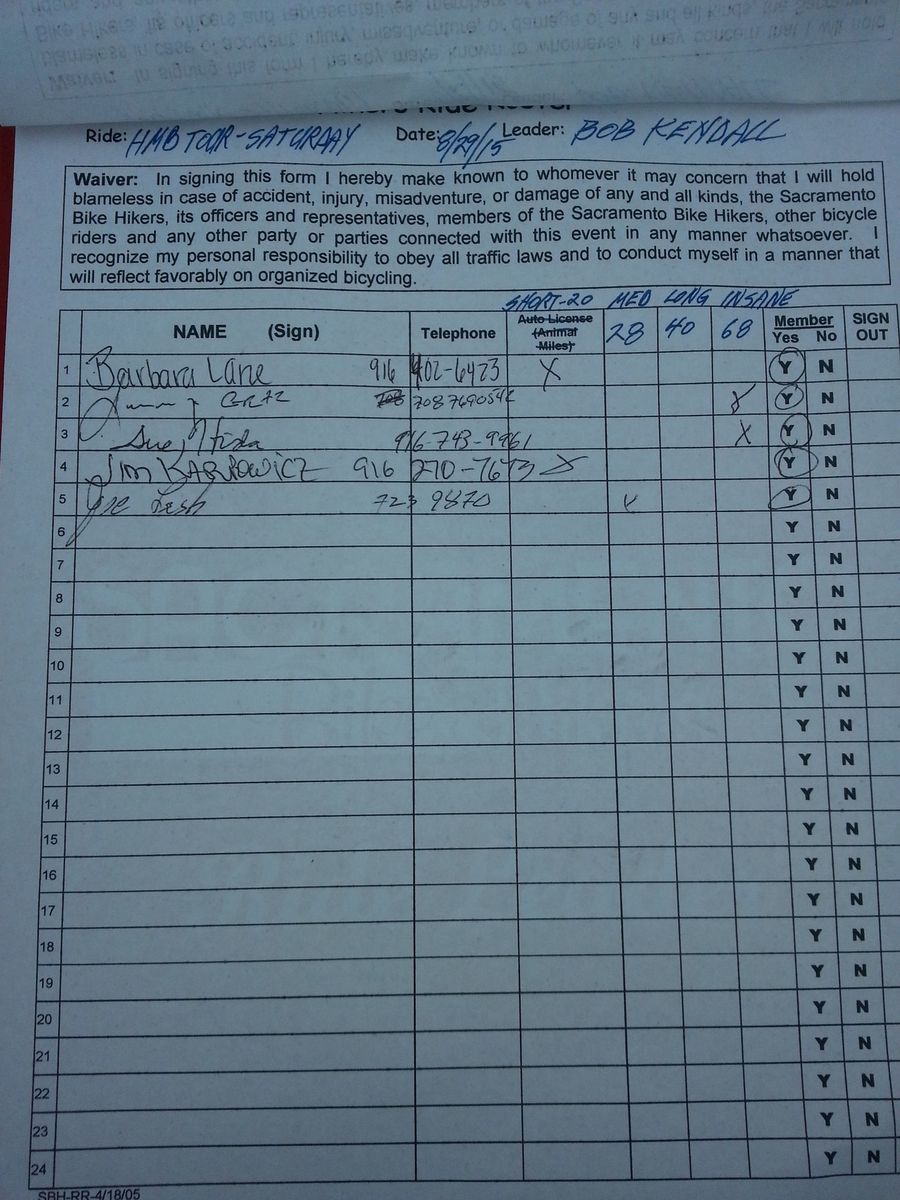 Ride: HMB TOUR-SATURDAY Date: 8/29/15 Leader: BOB KENDALL
Waiver: In signing this form I hereby make known to whomever it may concern that I will hold
blameless in case of accident, injury, misadventure, or damage of any and all kinds, the Sacramento
Bike Hikers, its officers and representatives, members of the Sacramento Bike Hikers, other bicycle
riders and any other party or parties connected with this event in any manner whatsoever. I
recognize my personal responsibility to obey all traffic laws and to conduct myself in a manner that
will reflect favorably on organized bicycling.
SHORT-20 MED LONG INSANE
NAME (Sign) Telephone Auto License (Animal Miles) 28 40 68 Member Yes No SIGN OUT
1 Barbara Lane 916 402-6423 X Y N
2 708 X Y N
3 Sue 916-743-9961 X Y N
4 Jim 916 270-7673 X Y N
5 Joe 723 9870 Y N
6 Y N
7 Y N
8 Y N
9 Y N
10 Y N
11 Y N
12 Y N
13 Y N
14 Y N
15 Y N
16 Y N
17 Y N
18 Y N
19 Y N
20 Y N
21 Y N
22 Y N
23 Y N
24 Y N
SBH-RR-4/18/05